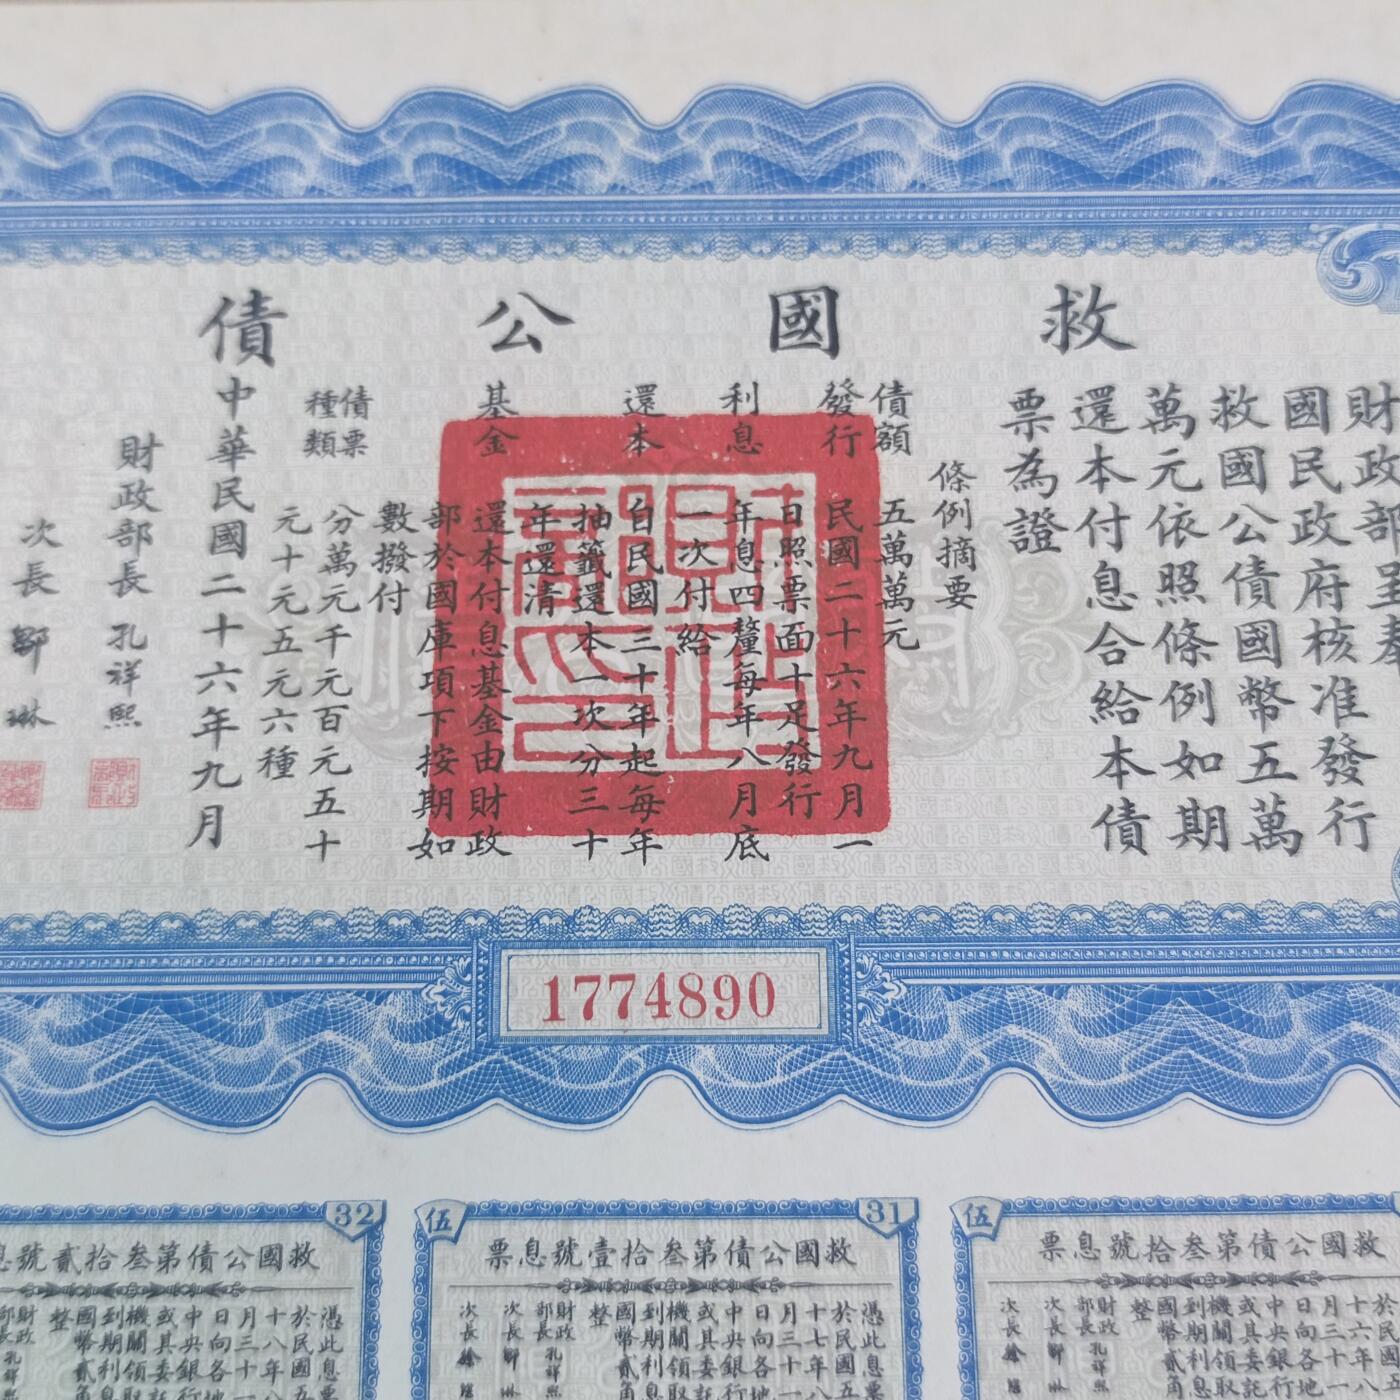 救國公債
財政部呈奉
國民政府核准發行
救國公債國幣五萬
萬元依照條例如期
還本付息合給本債
票為證
條例摘要
債額 五萬萬元
發行 民國二十六年九月一
日照票面十足發行
利息 年息四釐每年八月底
一次付給
還本 自民國三十年起每年
抽籤還本一次分三十
年還清
基金 還本付息基金由財政
部於國庫項下按期如
數撥付
債票種類 分萬元千元百元五十
元十元五元六種
中華民國二十六年九月
財政部長 孔祥熙
次長 鄒琳
財政部印
1774890
伍
救國公債第叁拾號息票
伍 31
救國公債第叁拾壹號息票
憑此息票
於民國五
十七年八
月三十一
日向各地
中央銀行
或其委託
機關領取
到期利息
國幣貳角
整
財政部長 孔祥熙
次長 鄒琳
次長 徐
32
救國公債第叁拾貳號息
憑此息票
於民國五
十八年八
月三十一
日向各地
中央銀行
或其委託
機關領取
到期利息
國幣貳角
整
財政部長 孔祥熙